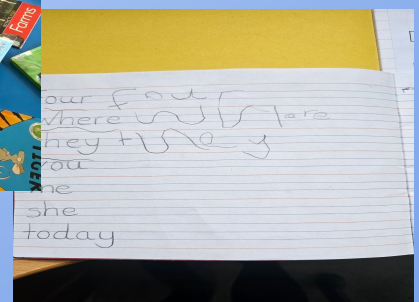 Farms
TIGER
our four
where where
hey they
you
he
she
today